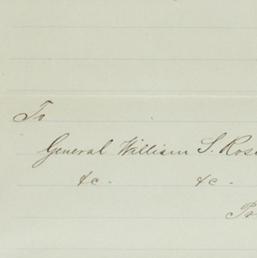 To
General William S. Ros
&c. &c.